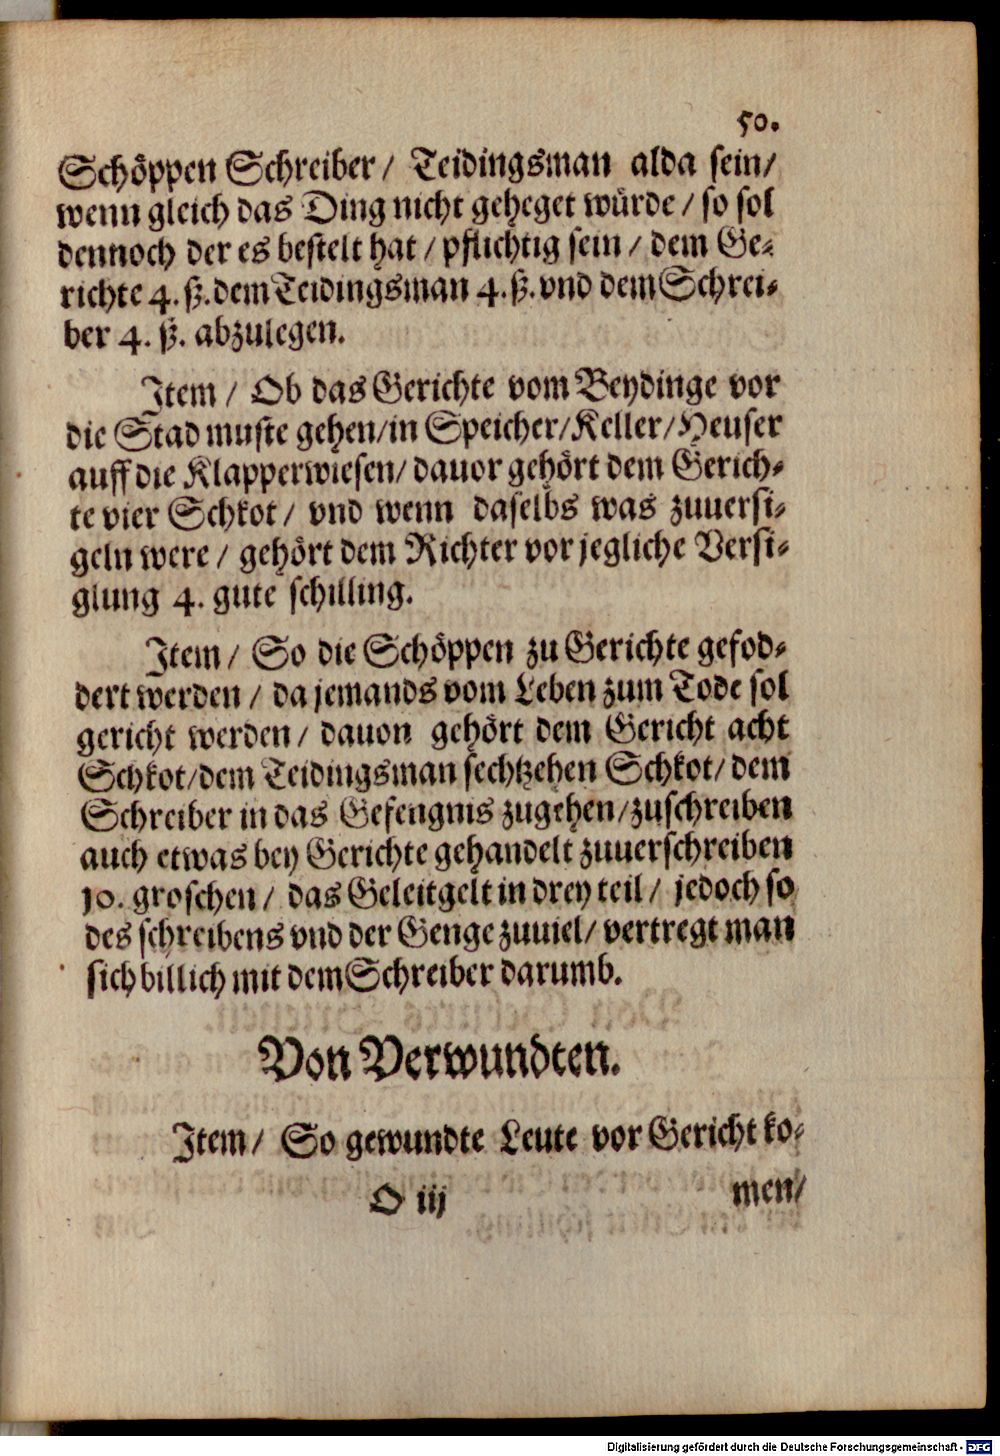 50.
Schöppen Schreiber / Teidingsman alda sein /
wenn gleich das Ding nicht geheget würde / so sol
dennoch der es bestelt hat / pflichtig sein / dem Ge-
richte 4. ß. dem Teidingsman 4. ß. vnd dem Schrei-
ber 4. ß. abzulegen.
Item / Ob das Gerichte vom Beydinge vor
die Stad muste gehen / in Speicher / Keller / Heuser
auff die Klapperwiesen / dauor gehört dem Gerich-
te vier Schkot / vnd wenn daselbs was zuuersi-
geln were / gehört dem Richter vor jegliche Versi-
glung 4. gute schilling.
Item / So die Schöppen zu Gerichte gefod-
dert werden / da jemands vom Leben zum Tode sol
gericht werden / dauon gehört dem Gericht acht
Schkot / dem Teidingsman sechtzehen Schkot / dem
Schreiber in das Gefengnis zugehen / zuschreiben
auch etwas bey Gerichte gehandelt zuuerschreiben
10. groschen / das Geleitgelt in drey teil / jedoch so
des schreibens vnd der Genge zuuiel / vertregt man
sich billich mit dem Schreiber darumb.
Von Verwundten.
Item / So gewundte Leute vor Gericht ko-
O iij men /
Digitalisierung gefördert durch die Deutsche Forschungsgemeinschaft - DFG